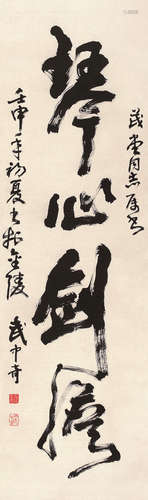 茂堂同志属书
琴心剑胆
壬申年初夏书于金陵
武中奇